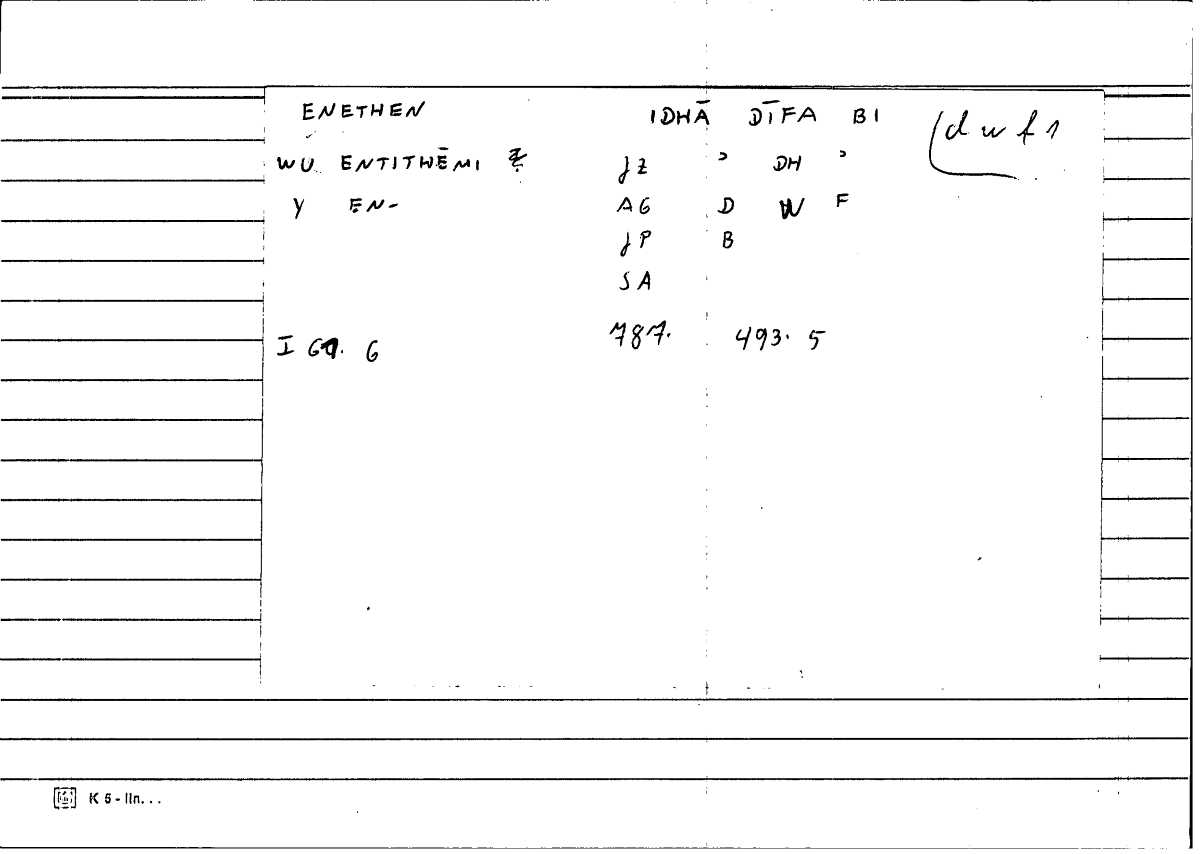 ENETHEN IDHĀ DĪFA BI (d w f 1
WU ENTITHĒMI Z JZ ʾ DH ʾ
Y EN- AG D W F
JP B
SA
I 69. 6 787. 493. 5
K 5 - lln. . .